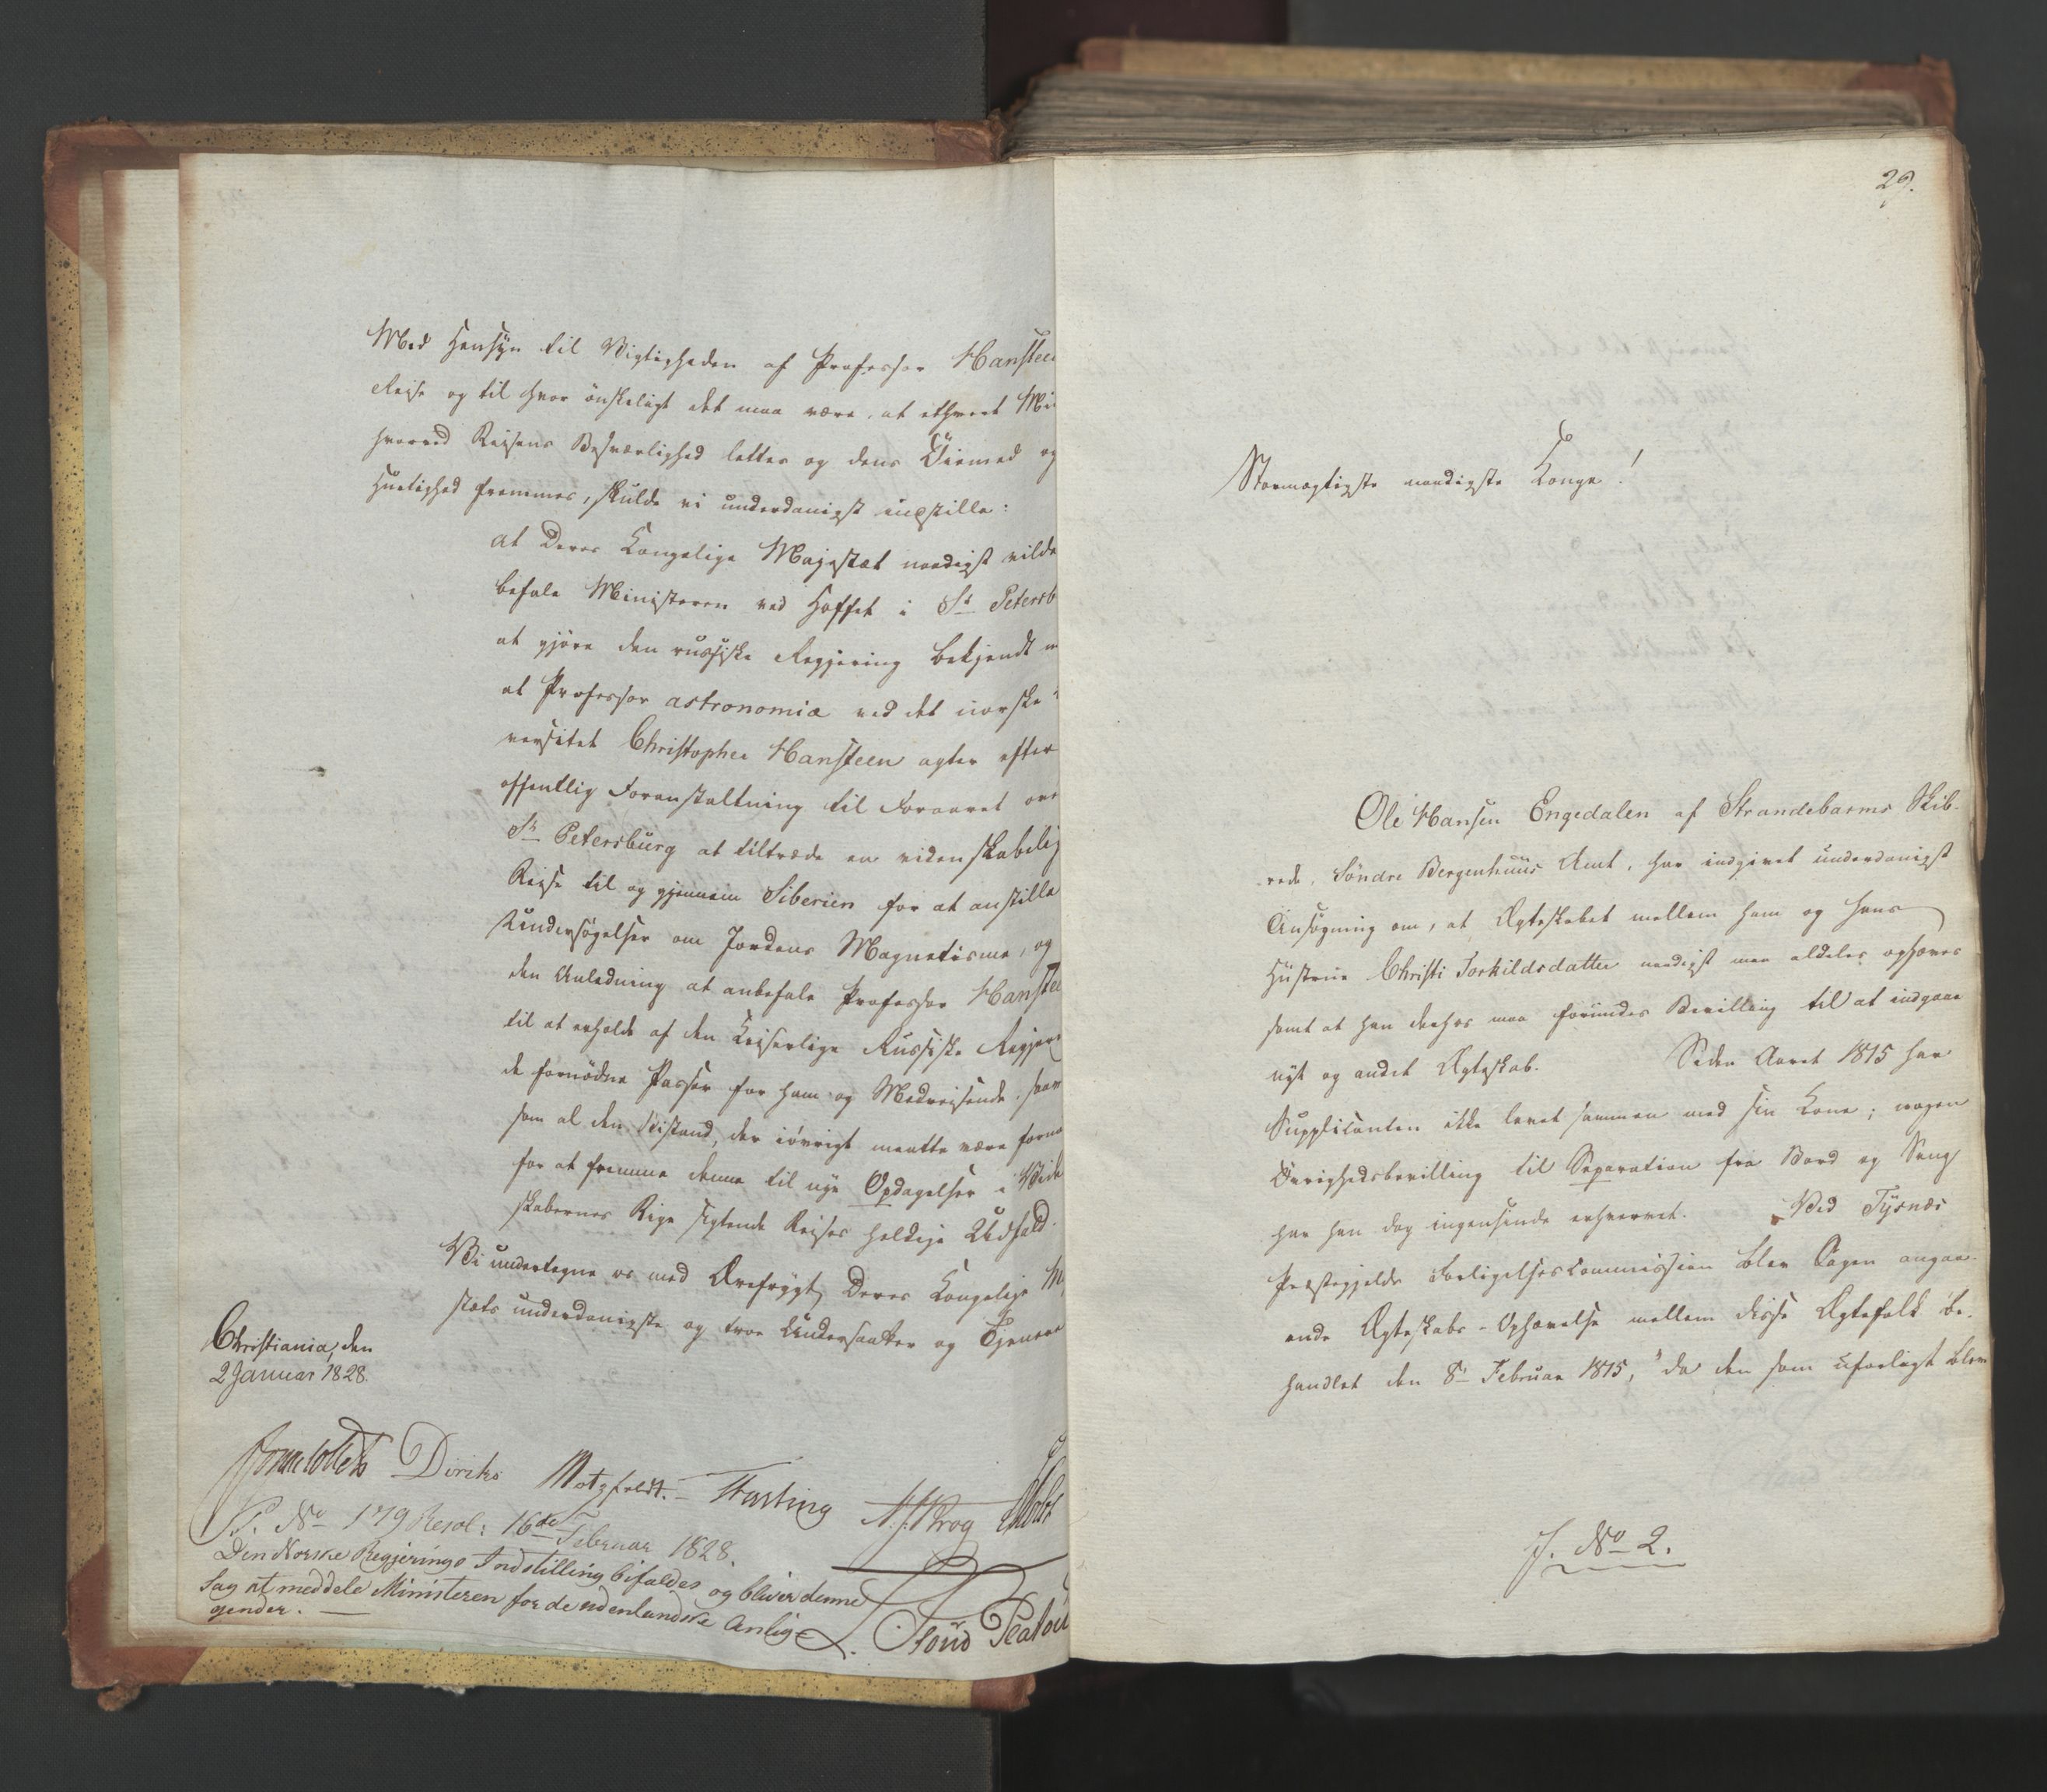 Med Hensyn til Vigtigheden af Professor Hanstee
Reise og til hvor önskeligt det maa være, at ethvert Mi
hvorved Reisens Besværlighed lettes og dens Öiemed og
Hurtighed fremmes, skulde vi underdanigst indstille:
at Deres Kongelige Majestæt naadigst vilde
befale Ministeren ved Hoffet i St. Petersb
at gjöre den russiske Regjering bekjendt m
at Professor astronomiæ ved det norske
versitet Christopher Hansteen agter efter
offentlig Foranstaltning til Foraaret over
St. Petersburg at tiltræde en videnskabelig
Reise til og gjennem Siberien for at anstille
Undersögelser om Jordens Magnetisme, og
den Anledning at anbefale Professor Hanstee
til at erholde af den Keiserlige Russiske Regjer
de fornödne Passer for ham og Medreisende, saa
som al den Bistand, der iövrigt maatte være forn
for at fremme denne til nye Opdagelser i Vide
skabernes Rige sigtende Reises heldige Udfald.
Vi undertegne os med Ærefrygt Deres Kongelige M
stæts underdanigste og troe Undersaatter og Tjenere
Christiania, den
2 Januar 1828.
Jonas Collett Diriks Motzfeldt. Fasting N. J. Krog Holst
S. No 179 Resol: 16de Februar 1828.
Den Norske Regjerings Indstilling bifaldes og bliver denne
Sag at meddele Ministeren for de udenlandske Anlig-
gender.
29.
Stormægtigste naadigste Konge!
Ole Hansen Engedalen af Strandebarms Skib-
rede, Söndre Bergenhuus Amt, har indgivet underdanigst
Ansögning om, at Ægteskabet mellem ham og hans
Hustrue Christi Torkildsdatter naadigst maa aldeles ophæves
samt at han derhos maa forundes Bevilling til at indgaae
nyt og andet Ægteskab. Siden Aaret 1815 har
Supplicanten ikke levet sammen med sin Kone; nogen
Övrighedsbevilling til Separation fra Bord og Seng
har han dog ingensinde erhvervet. Ved Tysnæs
Præstegjelds Forligelsescommission blev Sagen angaa-
ende Ægteskabs-Ophævelse mellem disse Ægtefolk be-
handlet den 8de Februar 1815, da den som uforligt blev
J. No 2.